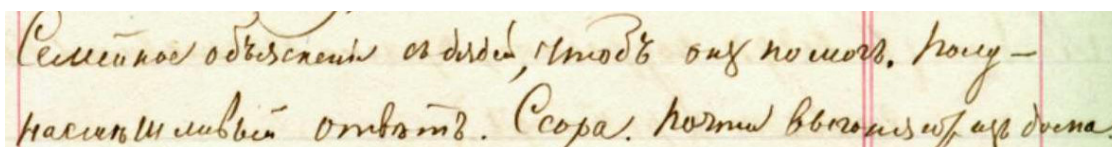 Семейное объясненіе съ дядей, чтобъ онъ помогъ. Полу-
насмѣшливый отвѣтъ. Ссора. Почти выгоняетъ изъ дома.